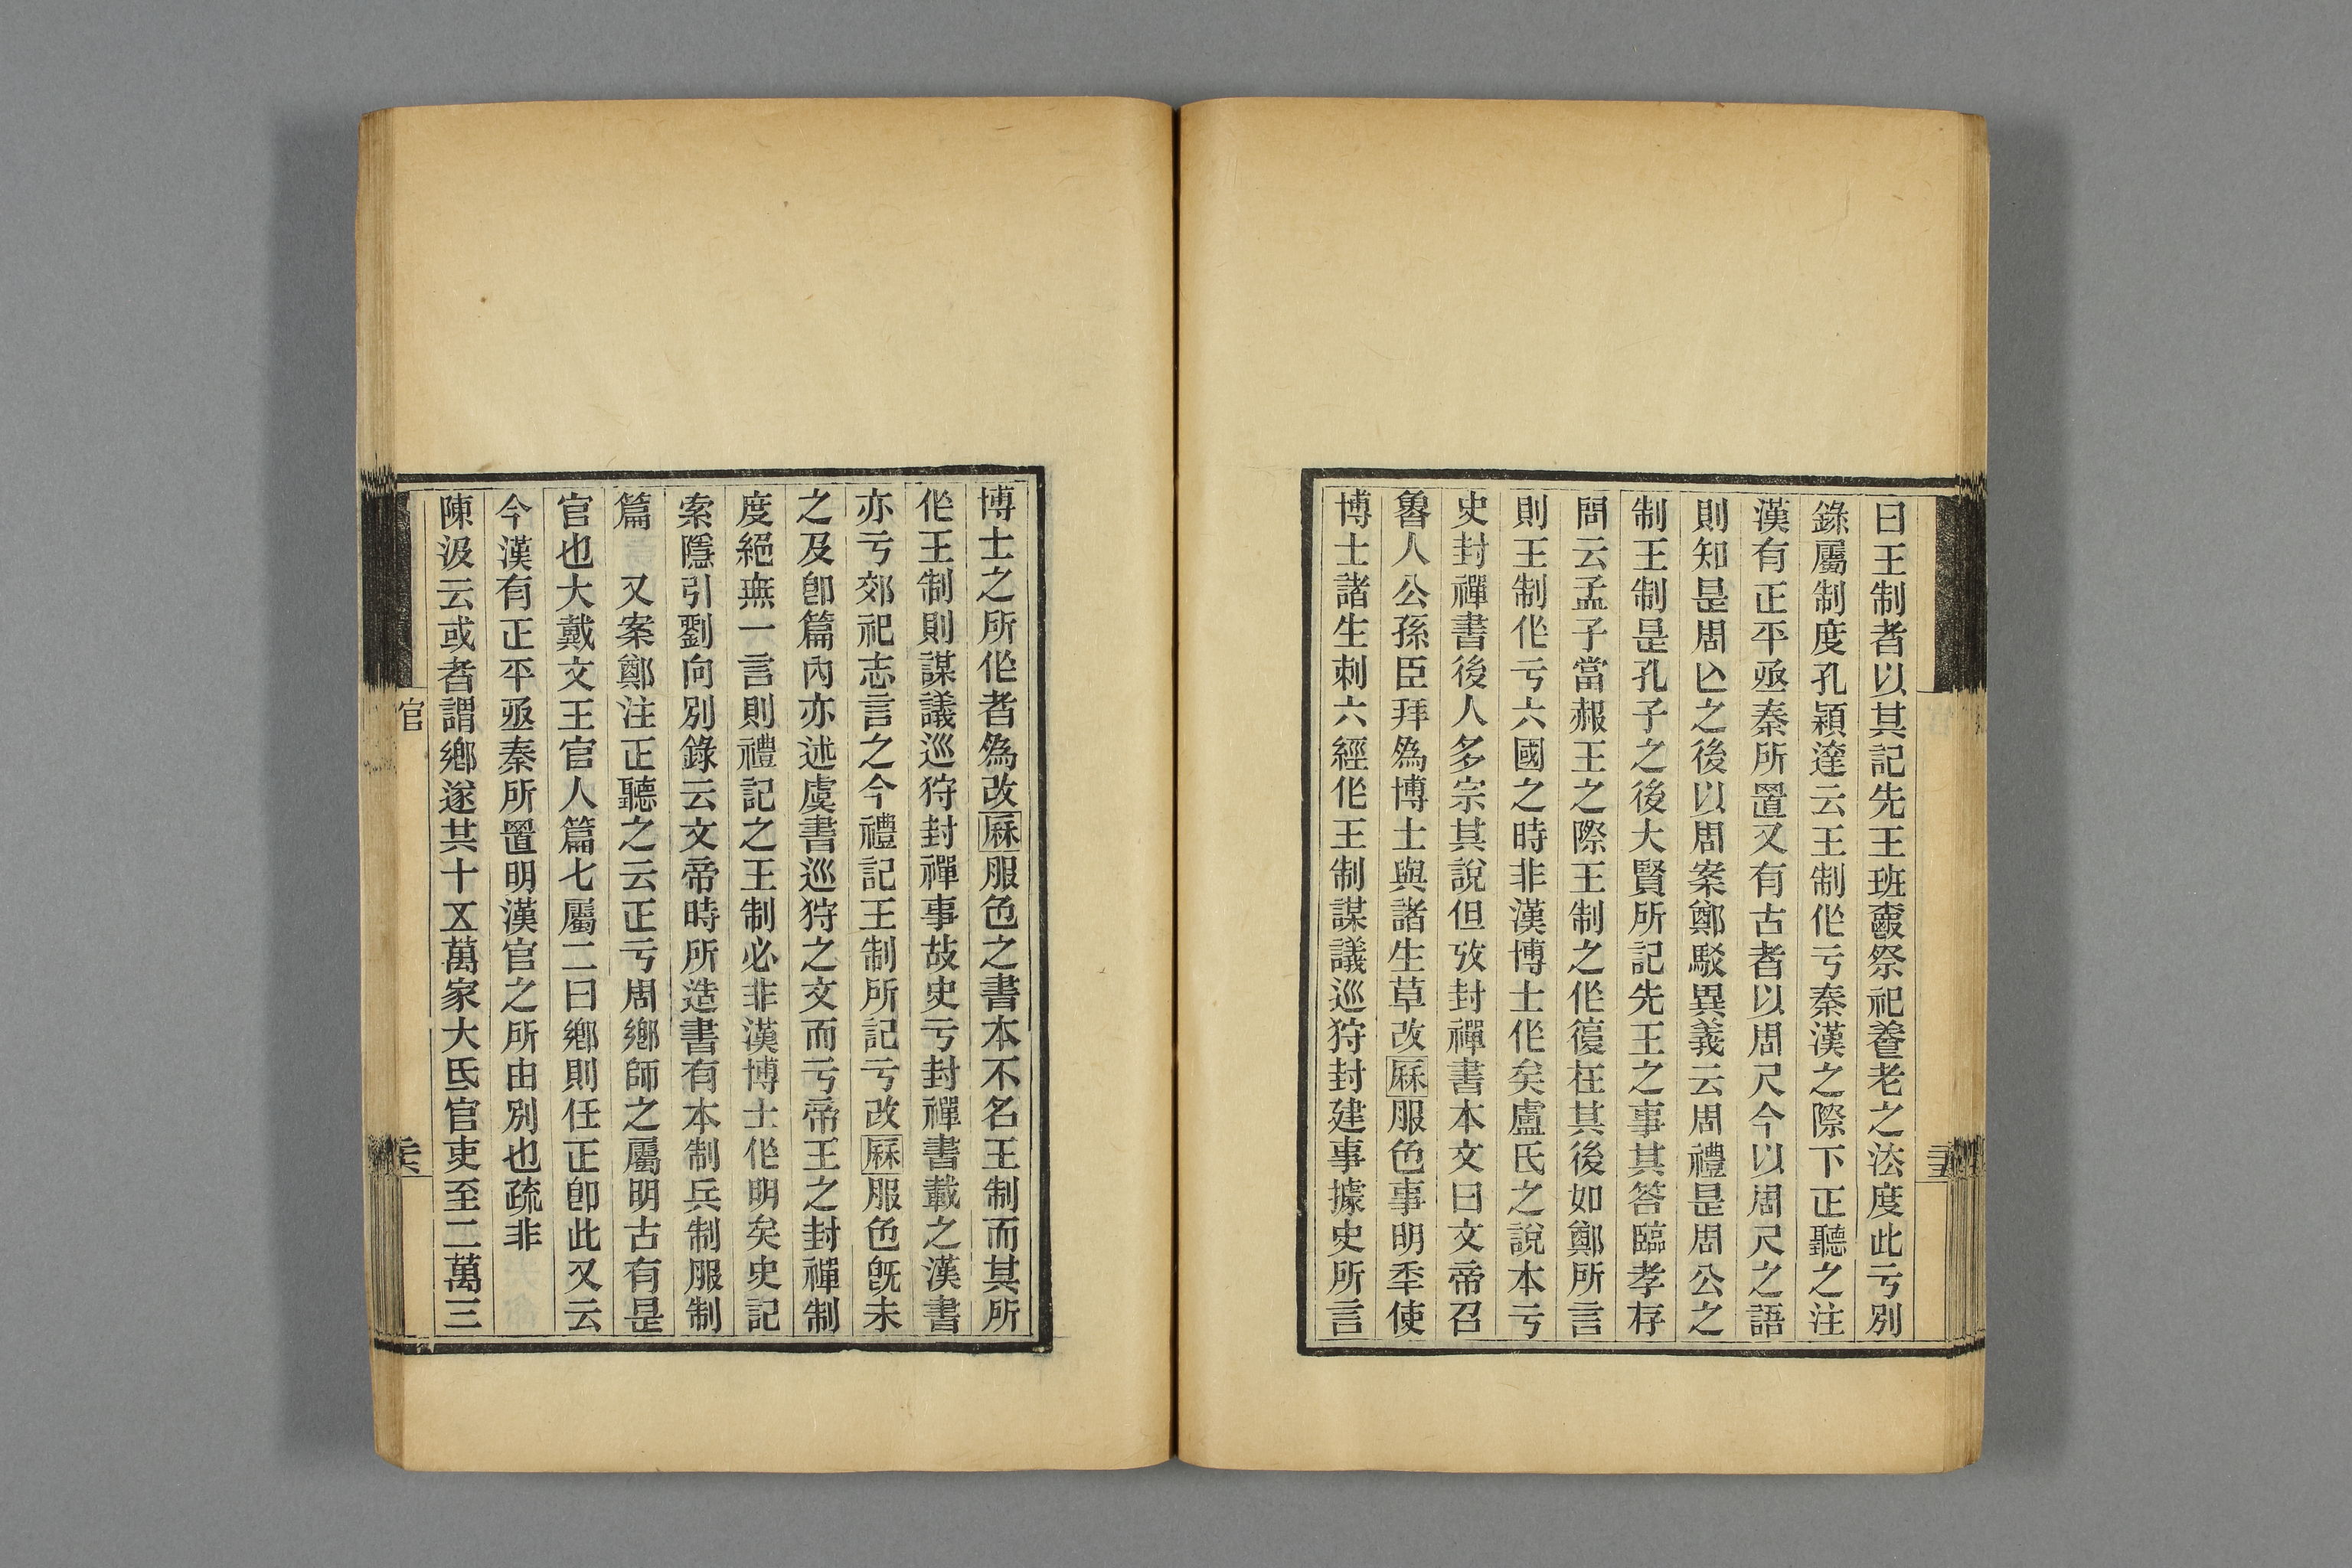 曰王制者以其記先王班爵祭祀養老之法度此亏別
錄屬制度孔穎達云王制作亏秦漢之際下正聽之注
漢有正平丞秦所置又有古者以周尺今以周尺之語
則知是周亾之後以周案鄭駁異義云周禮是周公之
制王制是孔子之後大賢所記先王之事其答臨孝存
問云孟子當赧王之際王制之作復在其後如鄭所言
則王制作亏六國之時非漢博士作矣盧氏之說本亏
史封禪書後人多宗其說但攷封禪書本文曰文帝召
魯人公孫臣拜爲博士與諸生草改厤服色事明秊使
博士諸生刺六經作王制謀議巡狩封建事據史所言
博士之所作者爲改厤服色之書本不名王制而其所
作王制則謀議巡狩封禪事故史亏封禪書載之漢書
亦亏郊祀志言之今禮記王制所記亏改厤服色旣未
之及卽篇內亦述虞書巡狩之文而亏帝王之封禪制
度絕無一言則禮記之王制必非漢博士作明矣史記
索隱引劉向別錄云文帝時所造書有本制兵制服制
篇　又案鄭注正聽之云正亏周鄉師之屬明古有是
官也大戴文王官人篇七屬二曰鄉則任正卽此又云
今漢有正平丞秦所置明漢官之所由別也疏非
陳汲云或者謂鄉遂共十五萬家大氐官吏至二萬三
官